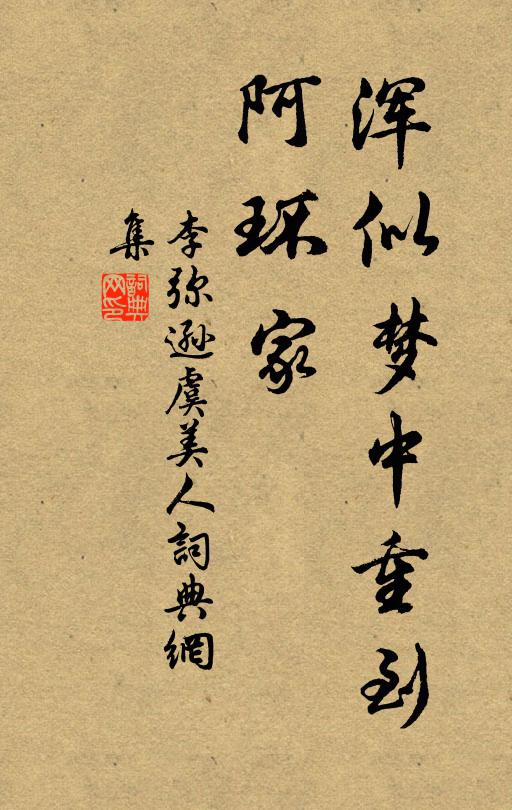 浑似梦中重到
阿环家
李弥逊虞美人詞典網
集
詞典
网印